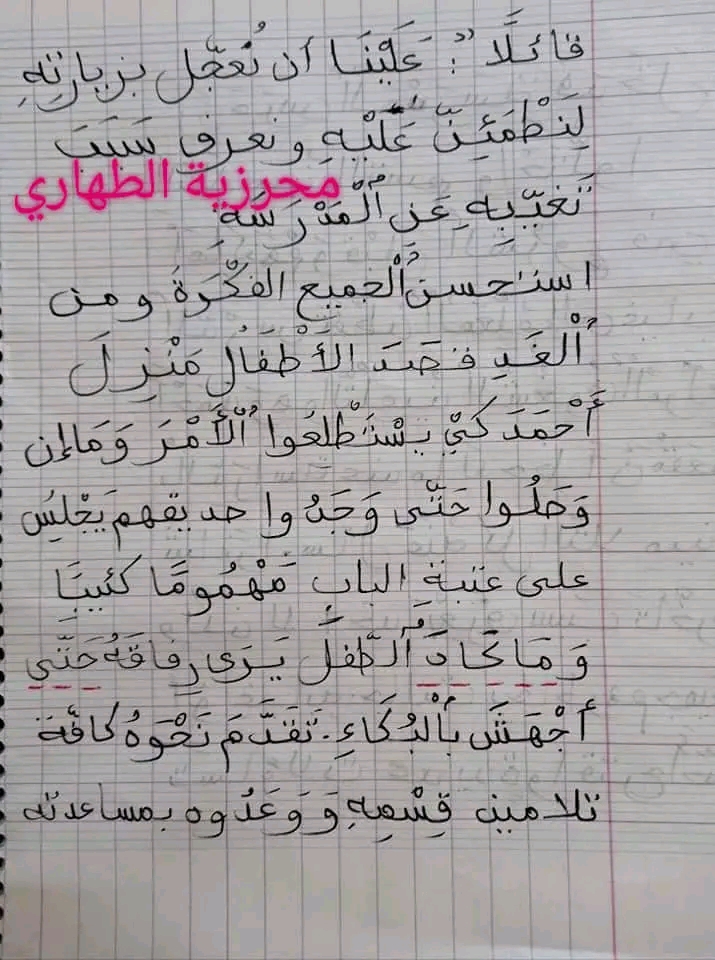 قائلًا": عَلَيْنَا أن نُعَجِّل بزيارتِهِ
لِنَطْمَئِنَّ عَلَيْهِ ونعرف سَبَبَ
محرزية الطهاري
تَغيّبِهِ عَنِ ٱلْمَدْرَسَةِ
استحسن ٱلْجميع الفكْرَةَ ومن
ٱلْغَدِ قصَدَ الأَطْفَالُ مَنْزِلَ
أَحْمَدَ كَيْ يَسْتَطْلِعُوا ٱلْأَمْرَ وَمَاإن
وَصَلُوا حَتَّى وَجَدُوا صديقهم يَجْلِسُ
على عتبةِ البابِ مَهْمُومًا كئيبًا
وَمَا كَادَ ٱلطّفلُ يَرَى رِفاقَهُ حَتَّى
أَجْهَشَ بِٱلْبُكَاءِ. تَقَدَّمَ نَحْوَهُ كافّة
تلاميذ قِسْمِهِ وَوَعَدُوه بمساعدته